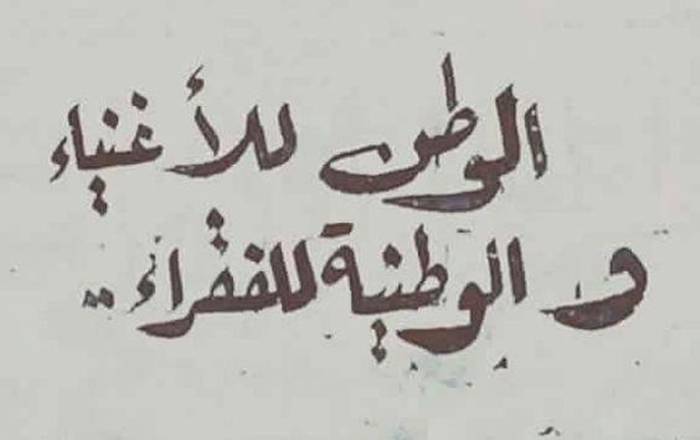 الوطن للأغنياء
و الوطنية للفقراء..